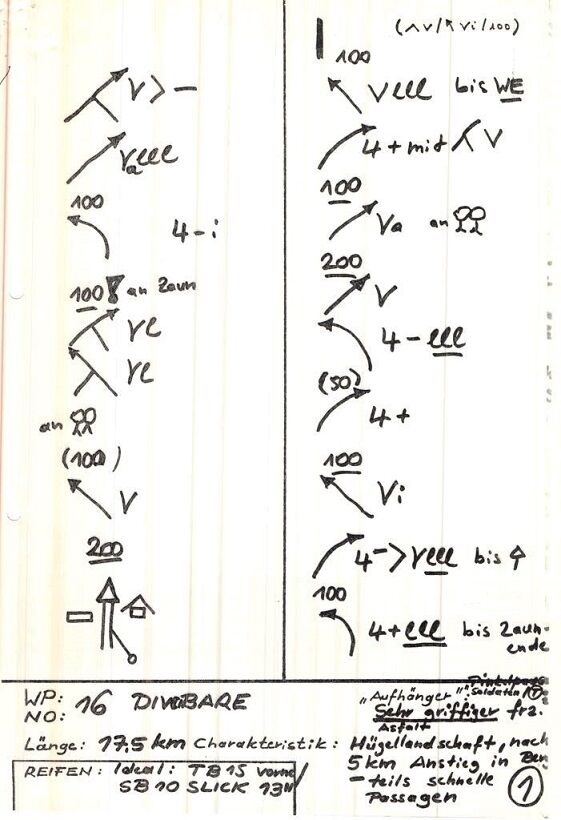 V > —
Va eee
100
4 - i
100 ! an Zaun
Ve
Ve
an
(100)
V
200
(100)
100
Veee bis WE
4 + mit V
100
Va an
200
V
4 - eee
(50)
4 +
100
Vi
4 - > Veee bis
100
4 + eee bis Zaun-
ende
WP: 16 DIVOBARE
NO:
"Aufhänger":
Sehr griffiger frz.
Asfalt
Länge: 17,5 km Charakteristik: Hügellandschaft, nach
5 km Anstieg in
— teils schnelle
Passagen
REIFEN: Ideal: TB 15 vorne/
SB 10 SLICK 13"
1